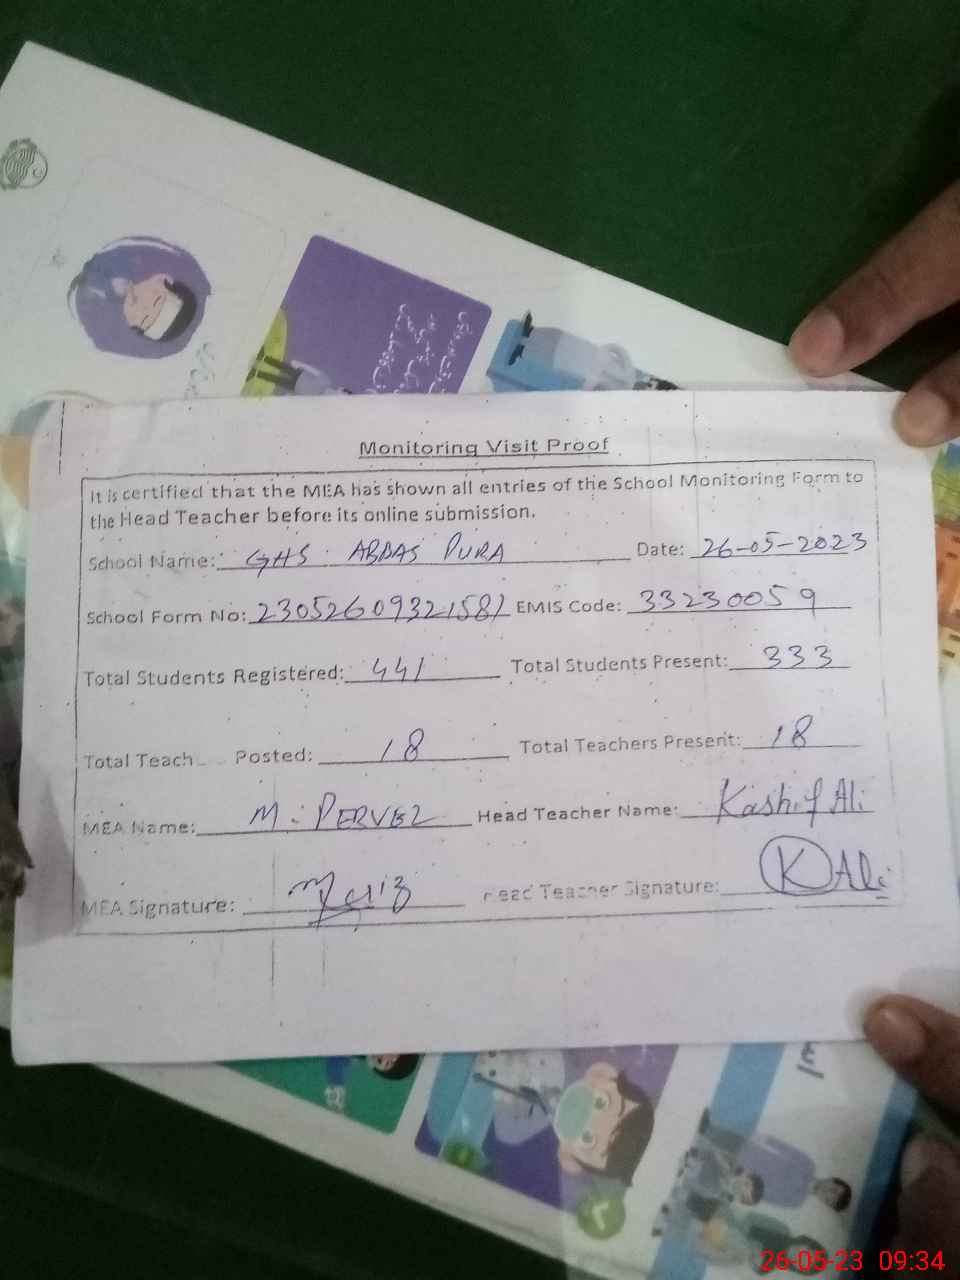 Monitoring Visit Proof
It is certified that the MEA has shown all entries of the School Monitoring Form to
the Head Teacher before its online submission.
School Name: GHS ABBAS PURA Date: 26-05-2023
School Form No: 23052609321581 EMIS Code: 33230059
Total Students Registered: 441 Total Students Present: 333
Total Teach Posted: 18 Total Teachers Present: 18
MEA Name: M. PERVEZ Head Teacher Name: Kashif Ali
MEA Signature: Head Teacher Signature: K Ali
26-05-23 09:34